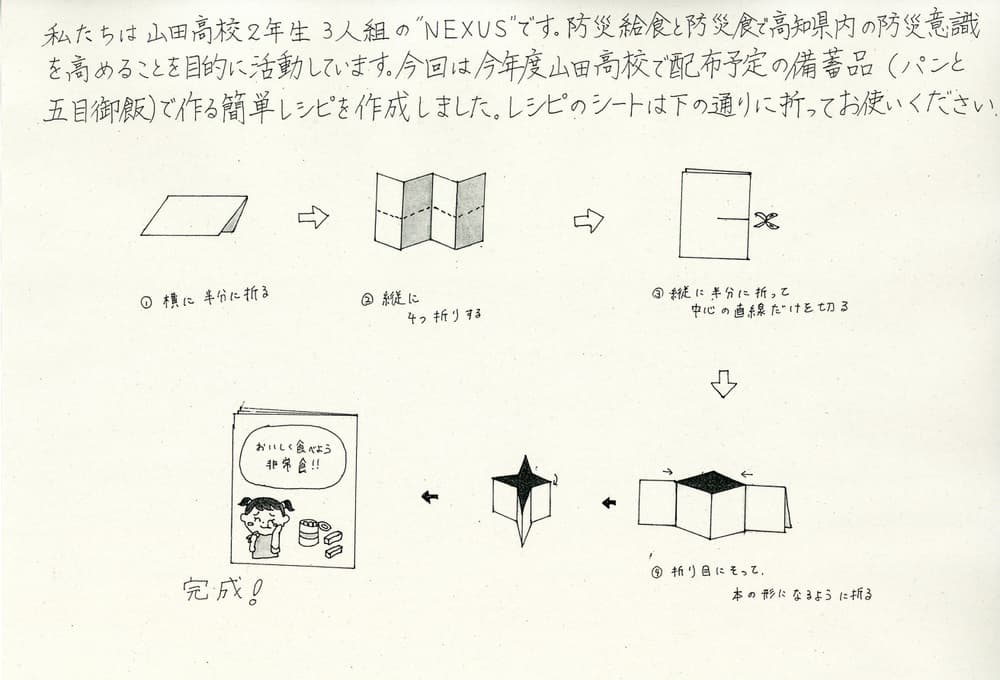 私たちは山田高校2年生3人組の"NEXUS"です。防災給食と防災食で高知県内の防災意識
を高めることを目的に活動しています。今回は今年度山田高校で配布予定の備蓄品(パンと
五目御飯)で作る簡単レシピを作成しました。レシピのシートは下の通りに折ってお使いください。
① 横に半分に折る
② 縦に
4つ折りする
③ 縦に半分に折って
中心の直線だけを切る
④ 折り目にそって、
本の形になるように折る
おいしく食べよう
非常食!!
完成!